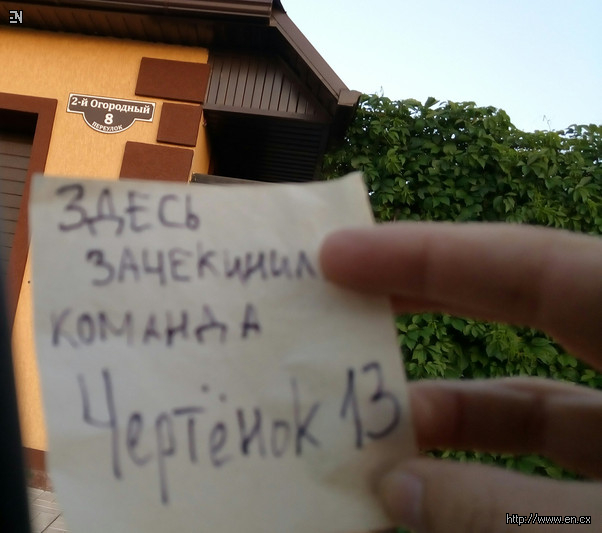 2-й Огородный
8
ПЕРЕУЛОК
ЗДЕСЬ
ЗАЧЕКИНИЛ
КОМАНДА
Чертёнок 13
http://www.en.cx